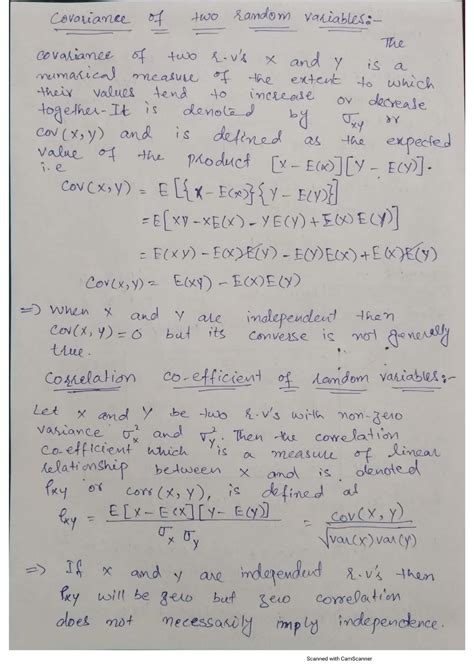 Covariance of two random variables:-
The
covariance of two r.v's X and Y is a
numarical measure of the extent to which
their values tend to increase or decrease
together. It is denoted by σxy or
cov(X,Y) and is defined as the expected
value of the product [X-E(X)][Y-E(Y)].
i.e
Cov(X,Y) = E[{X-E(X)}{Y-E(Y)}]
= E[XY-XE(X)-YE(Y)+E(X)E(Y)]
= E(XY)-E(X)E(Y)-E(Y)E(X)+E(X)E(Y)
Cov(X,Y) = E(XY)-E(X)E(Y)
=> When X and Y are independent then
Cov(X,Y)=0 but its converse is not generally
true.
Correlation co-efficient of random variables:-
Let X and Y be two r.v's with non-zero
variance σx² and σy². Then the correlation
co-efficient which is a measure of linear
relationship between X and is denoted
ρxy or corr(X,Y), is defined at
ρxy = E[X-E(X)][Y-E(Y)] / σx σy = Cov(X,Y) / √var(X)var(Y)
=> If X and Y are independent r.v's then
ρxy will be zero but zero correlation
does not necessarily imply independence.
Scanned with CamScanner